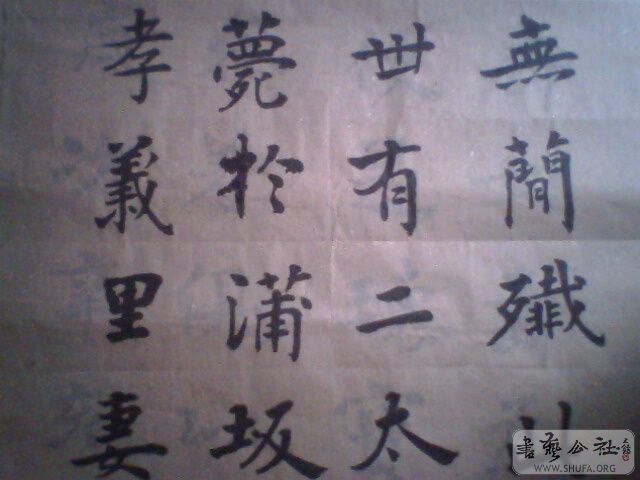 無蕳殲
丗有二太
薨於蒲坂
孝義里妻
書藝公社
WWW.SHUFA.ORG